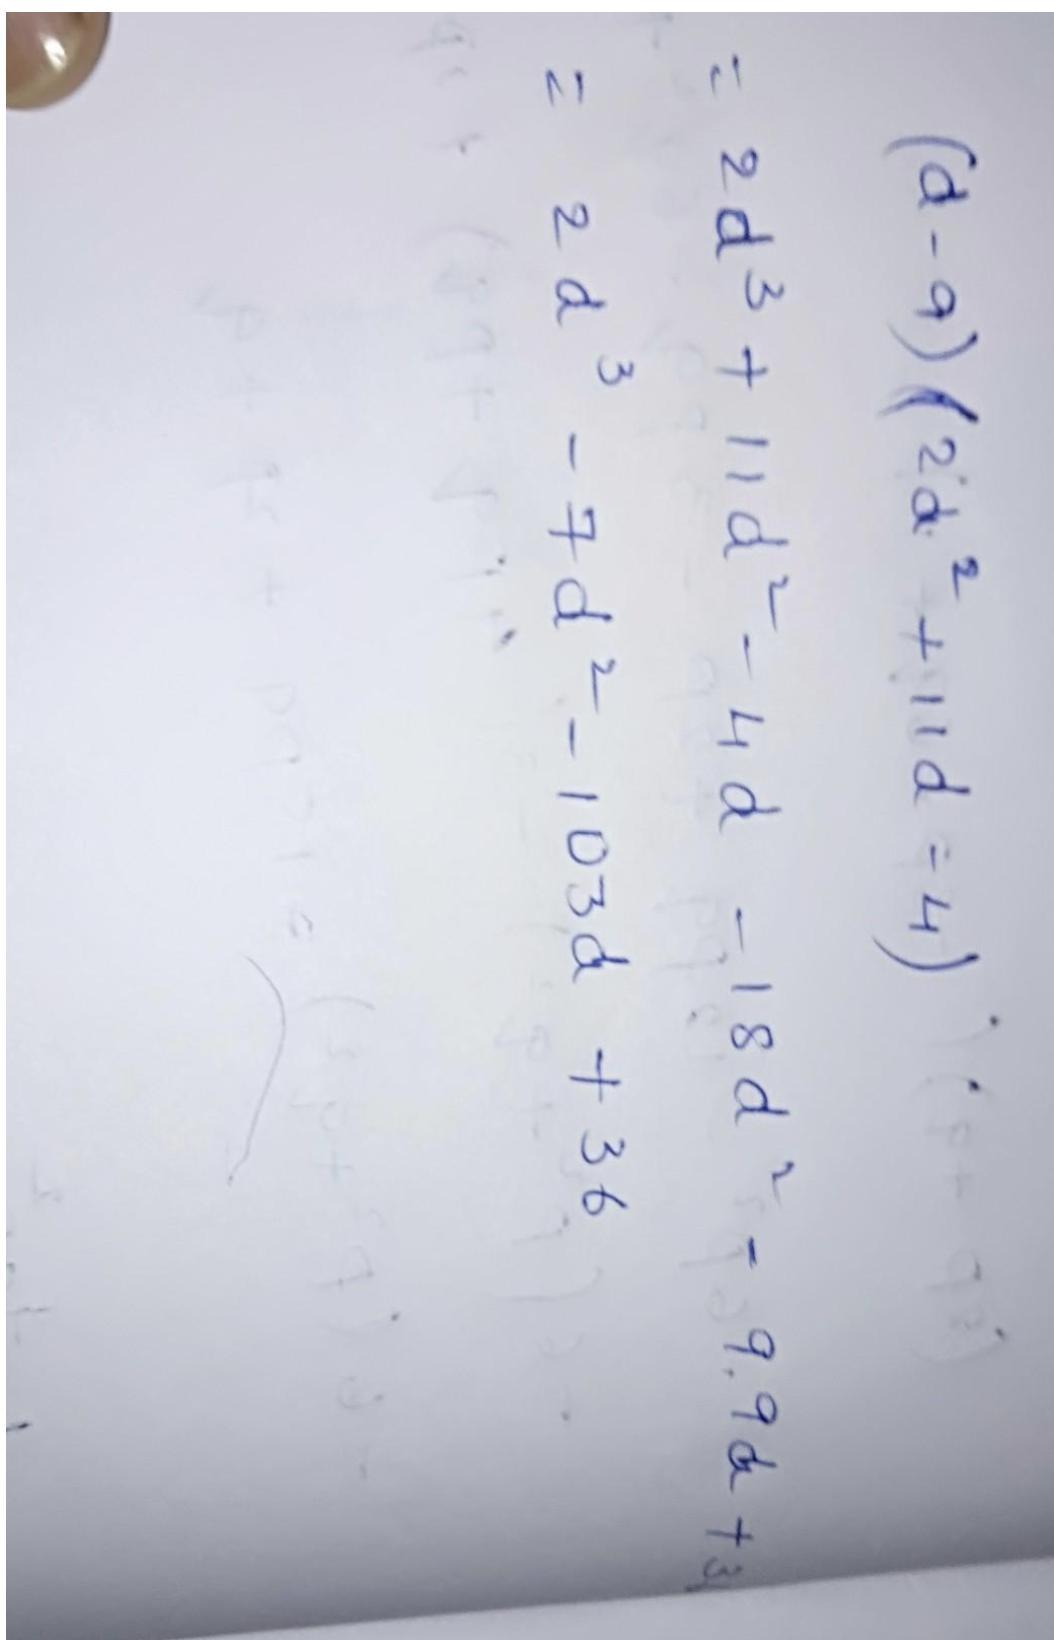 (d-9)(2d²+11d-4)
= 2d³ + 11d² - 4d - 18d² - 99d + 3
= 2d³ - 7d² - 103d + 36